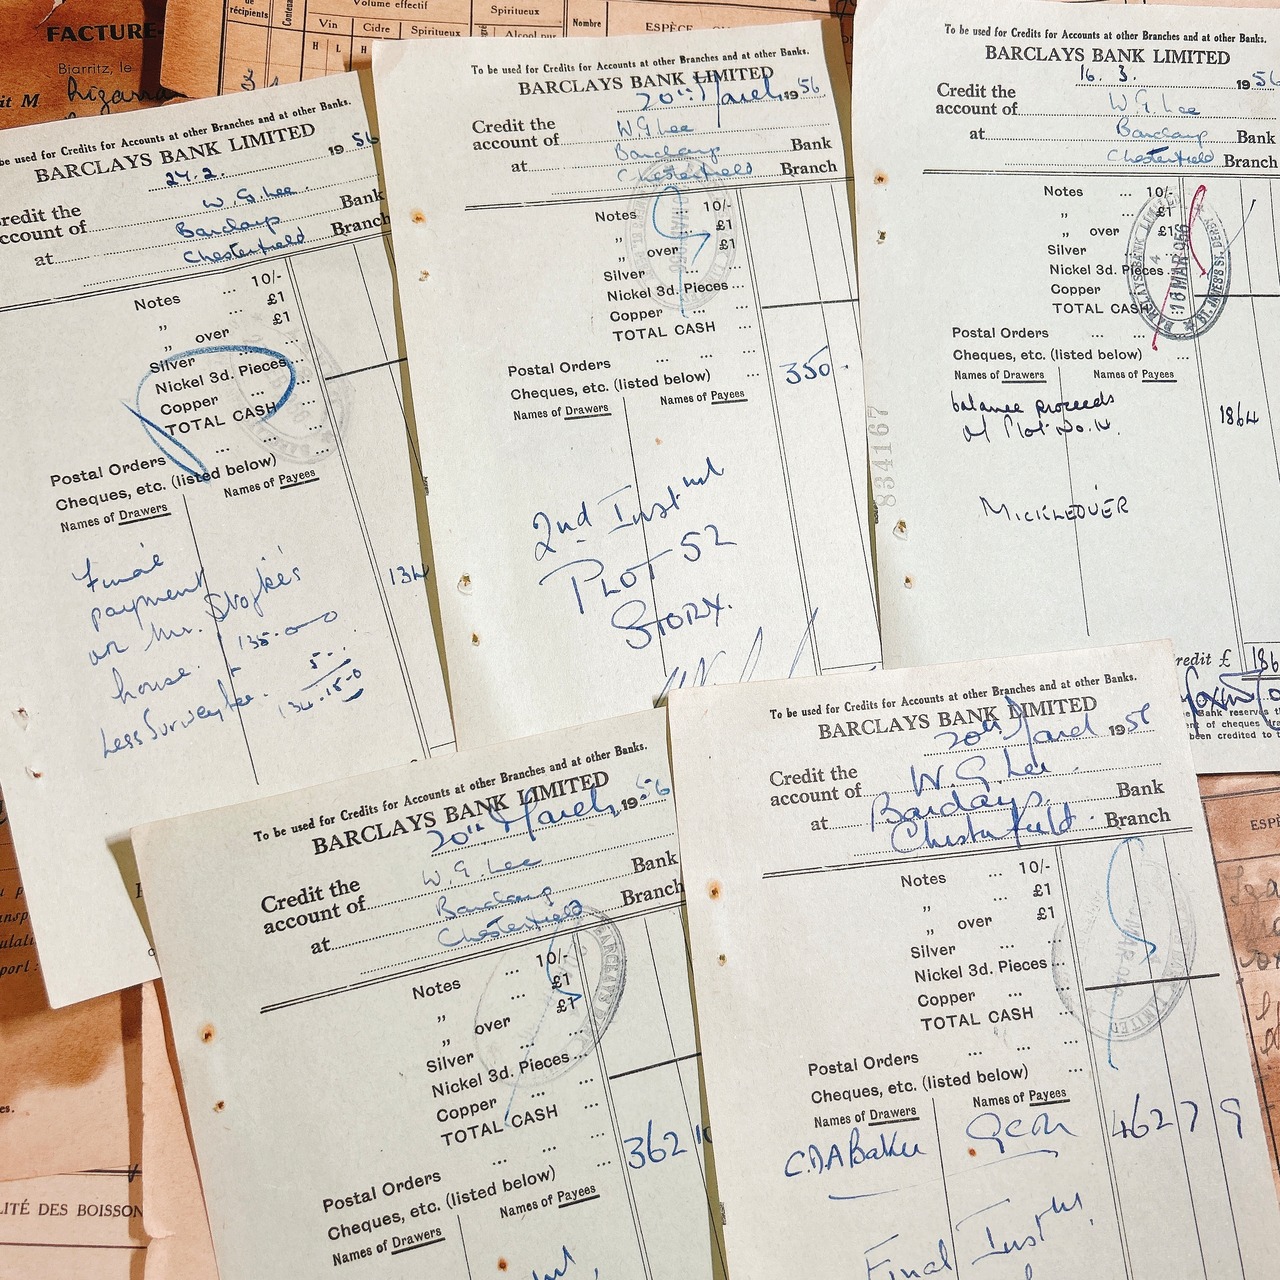 FACTURE
Biarritz, le
it M
récipients
Volume effectif
Spiritueux
Vin
Cidre
Spiritueux
H L H
Nombre
be used for Credits for Accounts at other Branches and at other Banks.
BARCLAYS BANK LIMITED
27.2. 19 56
Credit the
account of W. G. Lee.
at Barclays Bank
Chesterfield Branch
Notes ... 10/-
„ ... £1
„ over £1
Silver ... ...
Nickel 3d. Pieces...
Copper ... ...
TOTAL CASH ...
Postal Orders ... ...
Cheques, etc. (listed below) ...
Names of Drawers Names of Payees
134
payment
on Mr.
house. 135-0-0
Less Survey fee. 5-
134-15-0
To be used for Credits for Accounts at other Branches and at other Banks.
BARCLAYS BANK LIMITED
20th March 19 56
Credit the
account of W G Lee
at Barclays Bank
Chesterfield Branch
Notes ... 10/-
„ ... £1
„ over £1
Silver ... ...
Nickel 3d. Pieces...
Copper ... ...
TOTAL CASH ...
Postal Orders ... ...
Cheques, etc. (listed below) ... 350 -
Names of Drawers Names of Payees
2nd Instmt
PLOT 52
STORY.
To be used for Credits for Accounts at other Branches and at other Banks.
BARCLAYS BANK LIMITED
16. 3. 19 56
Credit the
account of W G Lee
at Barclays Bank
Chesterfield Branch
Notes ... 10/-
„ £1
„ over £1
Silver
Nickel 3d. Pieces...
Copper
TOTAL CASH
BARCLAYS BANK LIMITED
16 MAR 956
ST. JAMES'S ST. DERBY
Postal Orders ... ...
Cheques, etc. (listed below) ...
Names of Drawers Names of Payees
balance proceeds
of Plot No. 14. 1864
MICKLEOVER
834167
redit £ 186
e Bank reserves
nt of cheques
been credited to
To be used for Credits for Accounts at other Branches and at other Banks.
BARCLAYS BANK LIMITED
20th March, 19 56
Credit the
account of W. G. Lee
at Barclays Bank
Chesterfield Branch
Notes ... 10/-
„ ... £1
„ over £1
Silver ... ...
Nickel 3d. Pieces...
Copper ... ...
TOTAL CASH ...
BARCLAYS
Postal Orders ... ...
Cheques, etc. (listed below) ... 362 10
Names of Drawers Names of Payees
To be used for Credits for Accounts at other Branches and at other Banks.
BARCLAYS BANK LIMITED
20th March 19 56
Credit the
account of W. G. Lee.
at Barclays. Bank
Chesterfield. Branch
Notes ... 10/-
„ ... £1
„ over £1
Silver ... ...
Nickel 3d. Pieces...
Copper ... ...
TOTAL CASH ...
Postal Orders ... ...
Cheques, etc. (listed below) ...
Names of Drawers Names of Payees
C.D.A Baker 462 7 9
Final Instmt,
LITÉ DES BOISSON